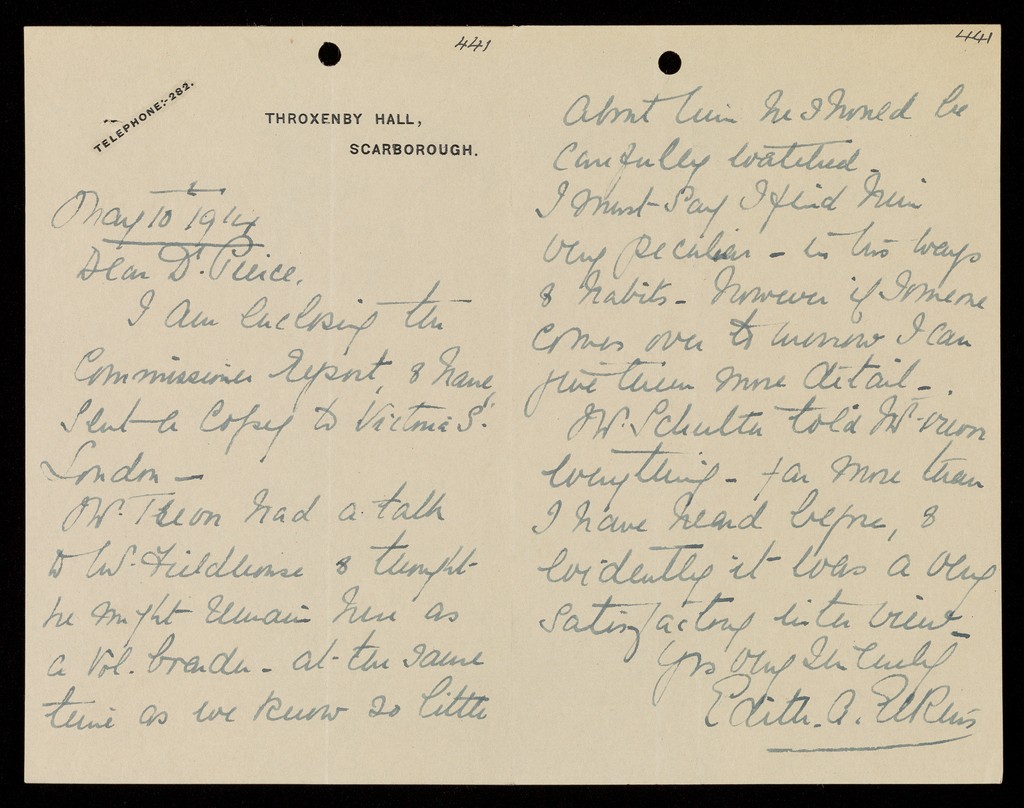 441
TELEPHONE:-282.
THROXENBY HALL,
SCARBOROUGH.
May 10th 1914
Dear Dr. Pierce.
I am enclosing the
Commissioner Report, & have
sent a Copy to Victoria St.
London -
Dr. Trevor had a talk
to Mr. Fieldhouse & thought
he might remain here as
a Vol. boarder - at the same
time as we know so little
441
about him he should be
carefully watched.
I must say I find him
very peculiar - in his ways
& habits - However if someone
comes over to morrow I can
give them more detail -.
Mr. Schultz told Dr.
everything - far more than
I have heard before, &
evidently it was a very
satisfactory interview -
Yrs very sincerely
Edith. A. Elkins